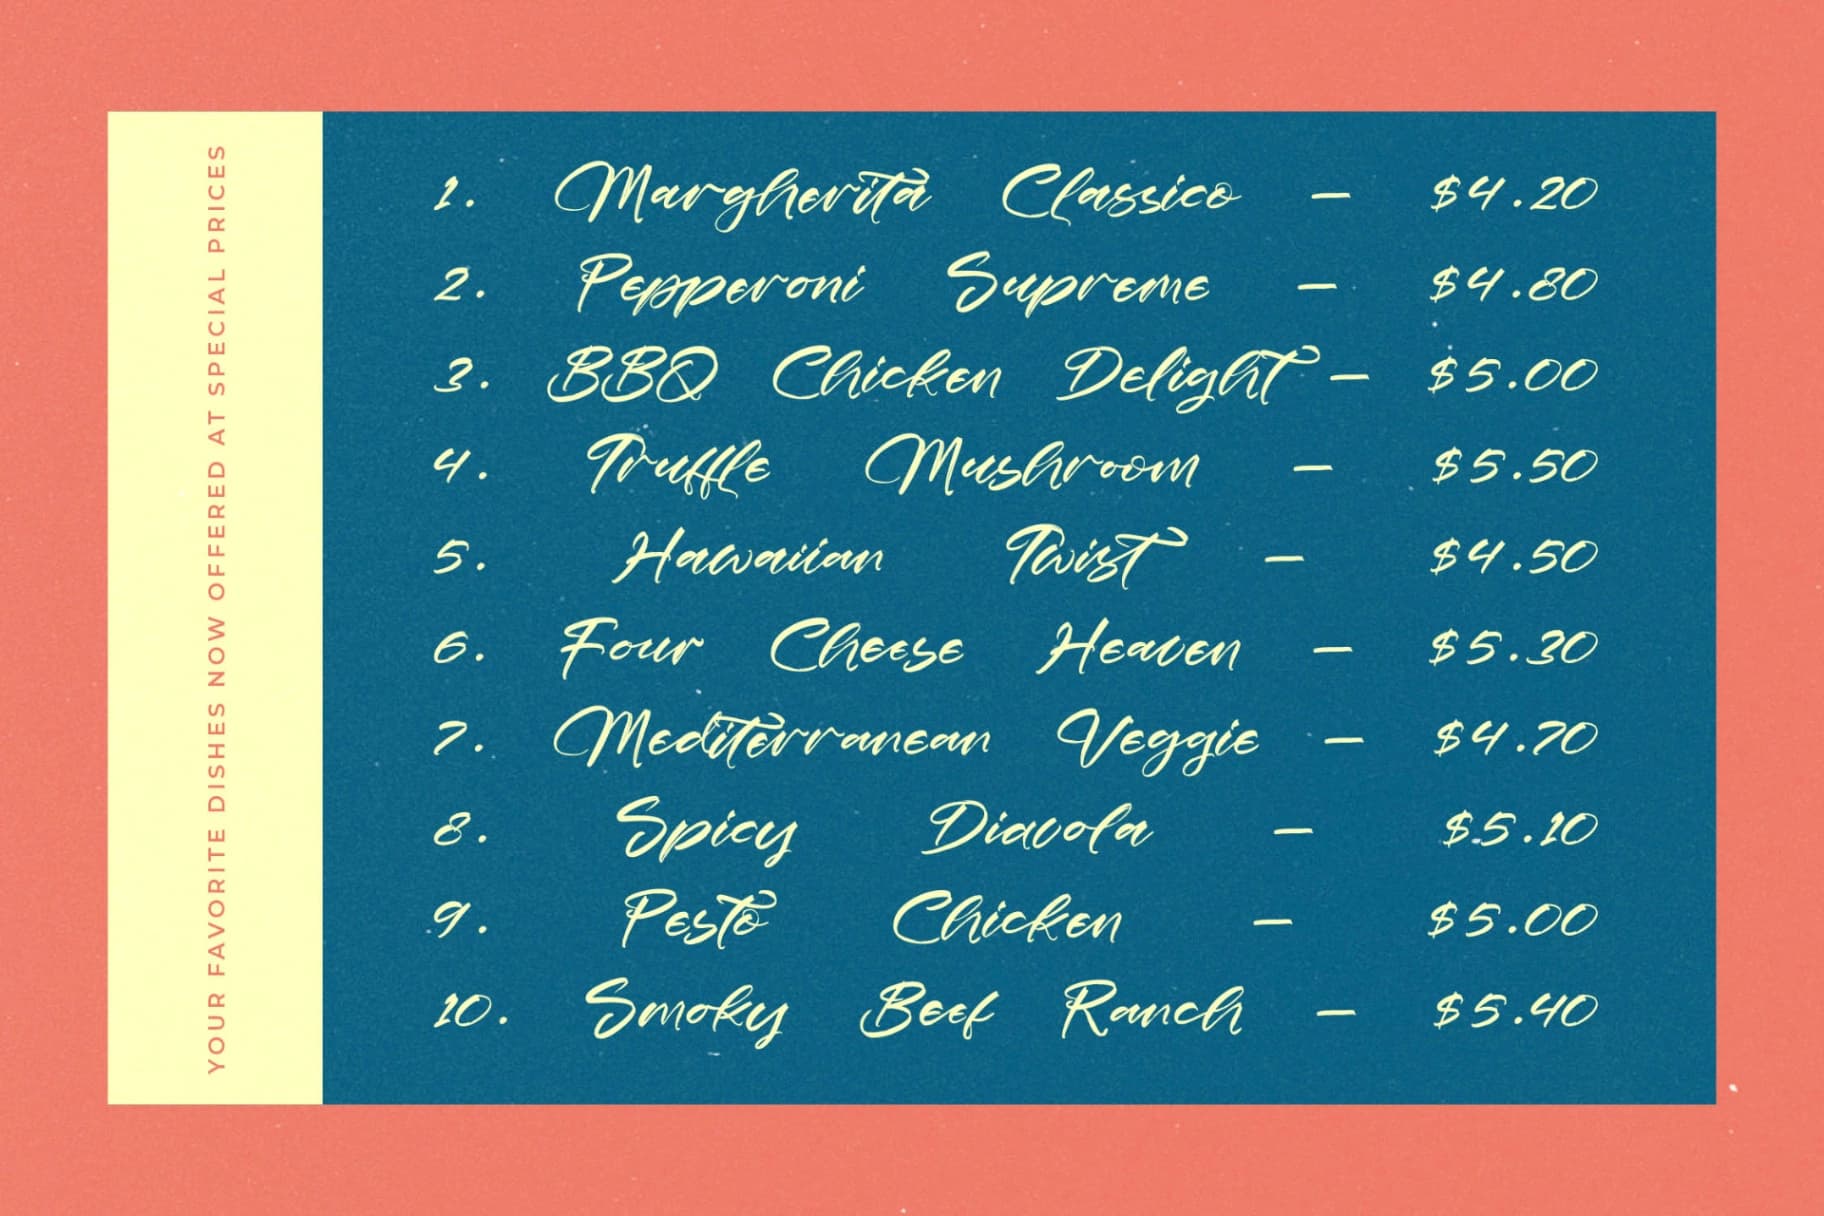 YOUR FAVORITE DISHES NOW OFFERED AT SPECIAL PRICES
1. Margherita Classico – $4.20
2. Pepperoni Supreme – $4.80
3. BBQ Chicken Delight – $5.00
4. Truffle Mushroom – $5.50
5. Hawaiian Twist – $4.50
6. Four Cheese Heaven – $5.30
7. Mediterranean Veggie – $4.70
8. Spicy Diavola – $5.10
9. Pesto Chicken – $5.00
10. Smoky Beef Ranch – $5.40